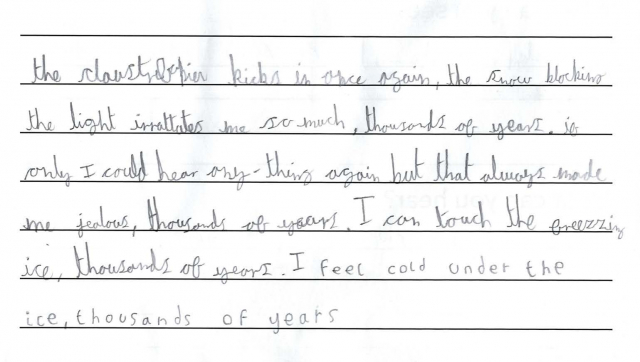 the claustrofpier kicks in once again, the snow blocking
the light irrattates me so much, thousands of years. if
only I could hear any-thing again but that always made
me jealous, thousands of years. I can touch the freezzing
ice, thousands of years. I feel cold under the
ice, thousands of years